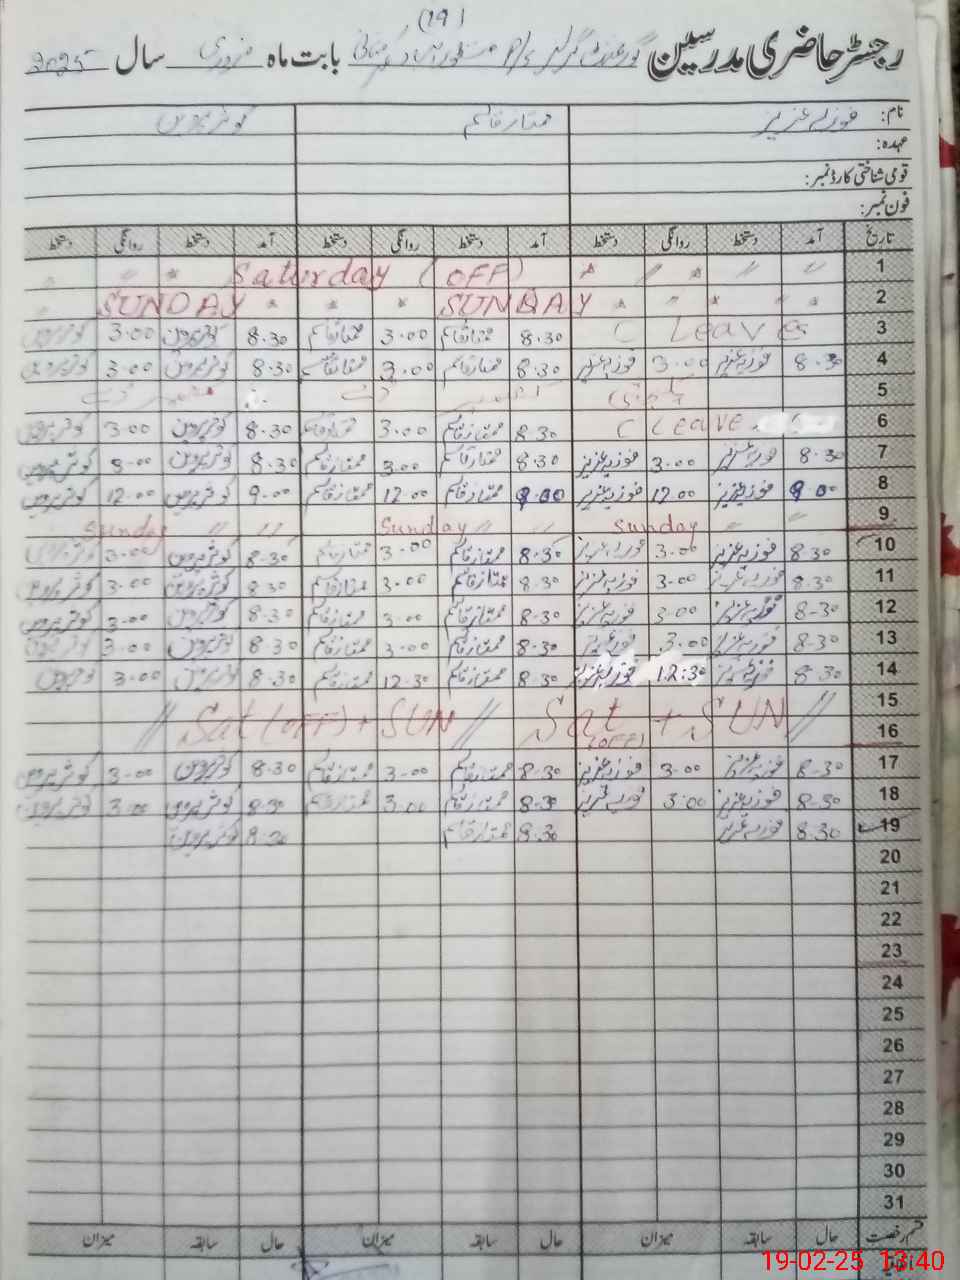 (19)
رجسٹر حاضری مدرسین گورنمنٹ گرلز بابت ماہ فروری سال 2025
نام: فوزیہ عزیز ممتاز قاسم کوثر پروین
عہدہ:
قومی شناختی کارڈ نمبر:
فون نمبر:
تاریخ آمد دستخط روانگی دستخط آمد دستخط روانگی دستخط آمد دستخط روانگی دستخط
1 〃 〃 〃 Saturday (OFF) 〃 〃
2 SUNDAY SUNDAY
3 C Leave 8.30 ممتاز قاسم 3.00 ممتاز قاسم 8.30 کوثر پروین 3.00 کوثر پروین
4 8.30 فوزیہ عزیز 3.00 فوزیہ عزیز 8.30 ممتاز قاسم 3.00 ممتاز قاسم 8.30 کوثر پروین 3.00 کوثر پروین
5
6 C Leave 8.30 ممتاز قاسم 3.00 ممتاز قاسم 8.30 کوثر پروین 3.00 کوثر پروین
7 8.30 فوزیہ عزیز 3.00 فوزیہ عزیز 8.30 ممتاز قاسم 3.00 ممتاز قاسم 8.30 کوثر پروین 3.00 کوثر پروین
8 9.00 فوزیہ عزیز 12.00 فوزیہ عزیز 9.00 ممتاز قاسم 12.00 ممتاز قاسم 9.00 کوثر پروین 12.00 کوثر پروین
9 〃 〃 Sunday 〃 〃 Sunday 〃 〃 Sunday
10 8.30 فوزیہ عزیز 3.00 فوزیہ عزیز 8.30 ممتاز قاسم 3.00 ممتاز قاسم 8.30 کوثر پروین 3.00 کوثر پروین
11 8.30 فوزیہ عزیز 3.00 فوزیہ عزیز 8.30 ممتاز قاسم 3.00 ممتاز قاسم 8.30 کوثر پروین 3.00 کوثر پروین
12 8.30 فوزیہ عزیز 3.00 فوزیہ عزیز 8.30 ممتاز قاسم 3.00 ممتاز قاسم 8.30 کوثر پروین 3.00 کوثر پروین
13 8.30 فوزیہ عزیز 3.00 فوزیہ عزیز 8.30 ممتاز قاسم 3.00 ممتاز قاسم 8.30 کوثر پروین 3.00 کوثر پروین
14 8.30 فوزیہ عزیز 12:30 فوزیہ عزیز 8.30 ممتاز قاسم 12.30 ممتاز قاسم 8.30 کوثر پروین 3.00 کوثر پروین
15
16 // Sat (OFF) + SUN // Sat (OFF) + SUN //
17 8.30 فوزیہ عزیز 3.00 فوزیہ عزیز 8.30 ممتاز قاسم 3.00 ممتاز قاسم 8.30 کوثر پروین 3.00 کوثر پروین
18 8.30 فوزیہ عزیز 3.00 فوزیہ عزیز 8.30 ممتاز قاسم 3.00 ممتاز قاسم 8.30 کوثر پروین 3.00 کوثر پروین
19 8.30 فوزیہ عزیز 8.30 ممتاز قاسم 8.30 کوثر پروین
20
21
22
23
24
25
26
27
28
29
30
31
قسم رخصت حال سابقہ میزان حال سابقہ میزان حال سابقہ میزان
اتفاقیہ
19-02-25 13:40